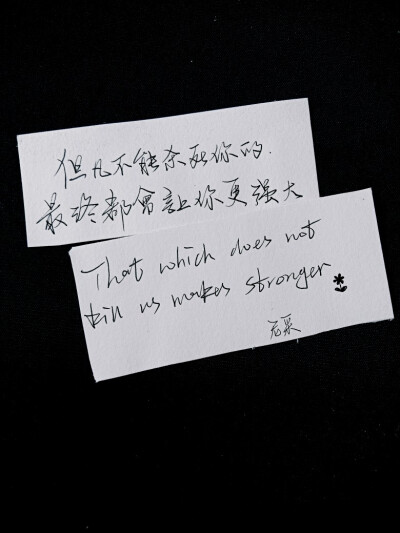 但凡不能杀死你的.
最终都会让你更强大
That which does not
kill us makes stronger
尼采